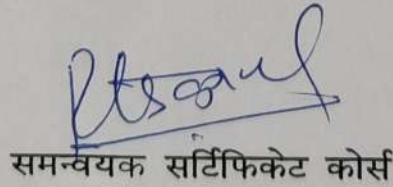 समन्वयक सर्टिफिकेट कोर्स